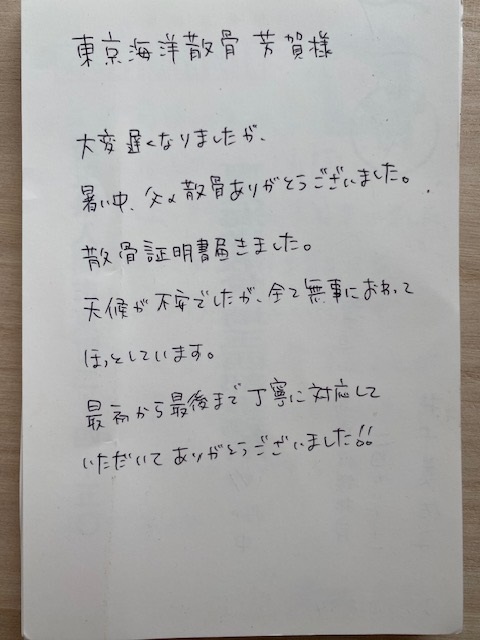 東京海洋散骨 芳賀様
大変遅くなりましたが、
暑い中、父の散骨ありがとうございました。
散骨証明書届きました。
天候が不安でしたが、全て無事におわって
ほっとしています。
最初から最後まで丁寧に対応して
いただいてありがとうございました!!